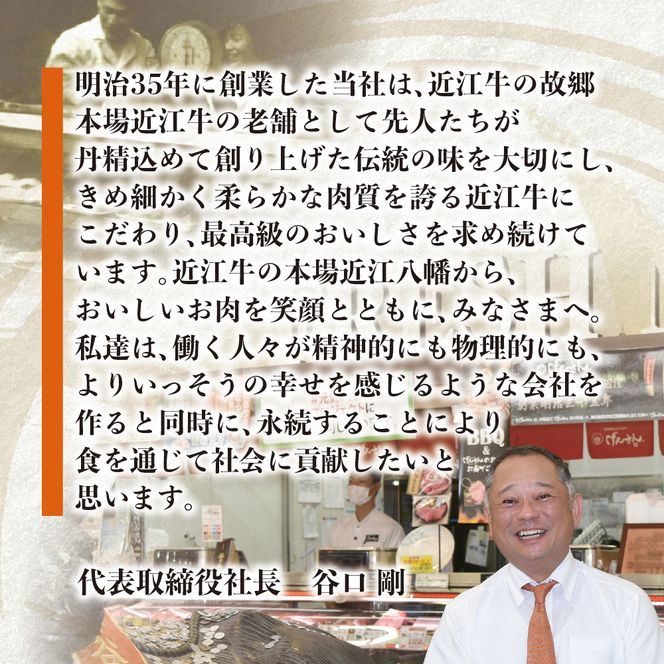 明治35年に創業した当社は、近江牛の故郷
本場近江牛の老舗として先人たちが
丹精込めて創り上げた伝統の味を大切にし、
きめ細かく柔らかな肉質を誇る近江牛に
こだわり、最高級のおいしさを求め続けて
います。近江牛の本場近江八幡から、
おいしいお肉を笑顔とともに、みなさまへ。
私達は、働く人々が精神的にも物理的にも、
よりいっそうの幸せを感じるような会社を
作ると同時に、永続することにより
食を通じて社会に貢献したいと
思います。
代表取締役社長 谷口 剛
BBQ
&
げんさん